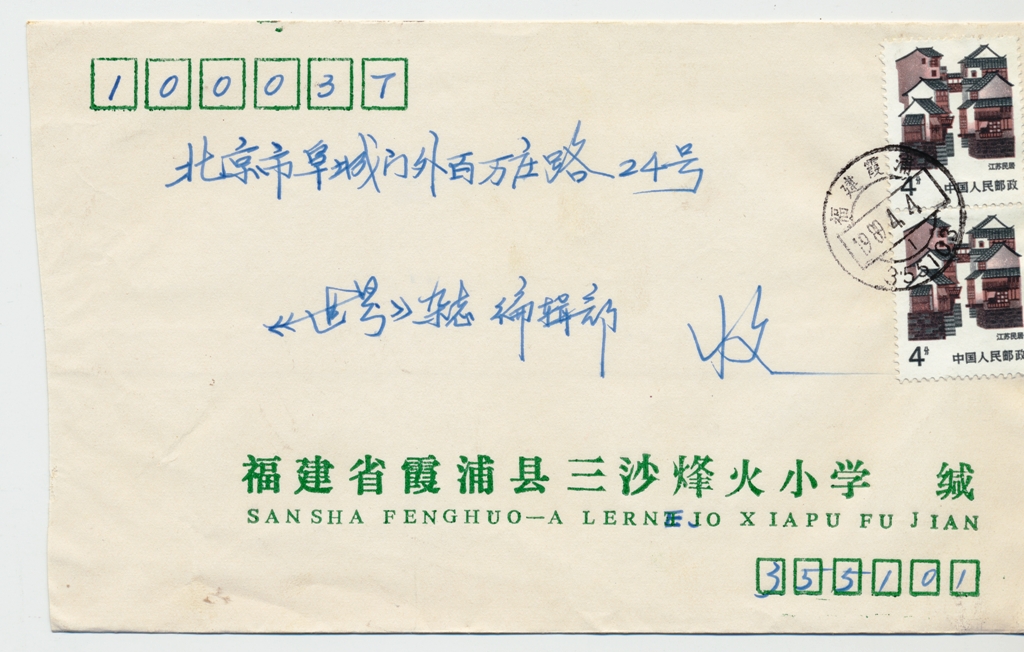 100037
北京市阜城门外百万庄路24号
《世界》杂志编辑部 收
福建省霞浦县三沙烽火小学 缄
SANSHA FENGHUO—A LERNEJO XIAPU FUJIAN
355101
江苏民居
4分 中国人民邮政
江苏民居
4分 中国人民邮政
福建霞浦
355103